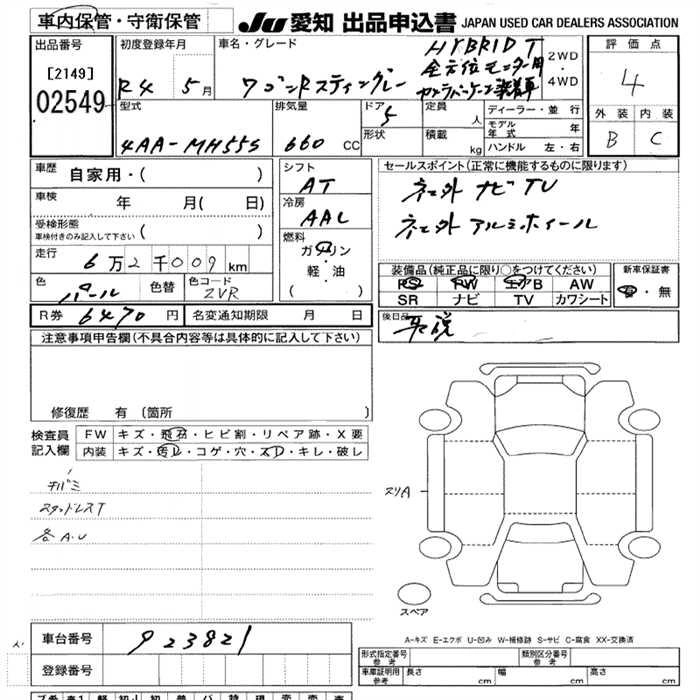 車内保管・守衛保管
JU 愛知 出品申込書 JAPAN USED CAR DEALERS ASSOCIATION
出品番号
[2149]
02549
初度登録年月
R4 5月
車名・グレード
ワゴンRスティングレー
HYBRID T
全方位モニター用
カメラパッケージ装着車
2WD
・
4WD
評価点
4
外装 内装
B C
型式
4AA-MH55S
排気量
660 CC
ドア
5
形状
定員
人
積載
kg
ディーラー・並行
モデル年式 年
ハンドル 左・右
車歴 自家用・( )
車検 年 月( 日)
受検形態
車検付きのみ記入して下さい ( )
走行 6万2千009km
色 パール
色替
色コード
ZVR
シフト
AT
冷房
AAC
燃料
ガソリン
軽・油
( )
セールスポイント(正常に機能するものに限ります)
ネ土外 ナビTV
ネ土外 アルミホイール
装備品(純正品に限り○をつけてください)
PS PW エアB AW
SR ナビ TV カワシート
新車保証書
有・無
R券 6470円
名変通知期限 月 日
後日品
取説
注意事項申告欄(不具合内容等は具体的に記入して下さい)
修復歴 有(箇所 )
検査員記入欄
FW キズ・飛石・ヒビ割・リペア跡・X要
内装 キズ・汚れ・コゲ・穴・スレ・キレ・破レ
スタッドレスT
各A.U
スリA
スペア
A-キズ E-エクボ U-凹み W-補修跡 S-サビ C-腐食 XX-交換済
車台番号 923821
登録番号
形式指定番号
参考
類別区分番号
参考
車庫証明用
参考
長さ cm
幅 cm
高さ cm